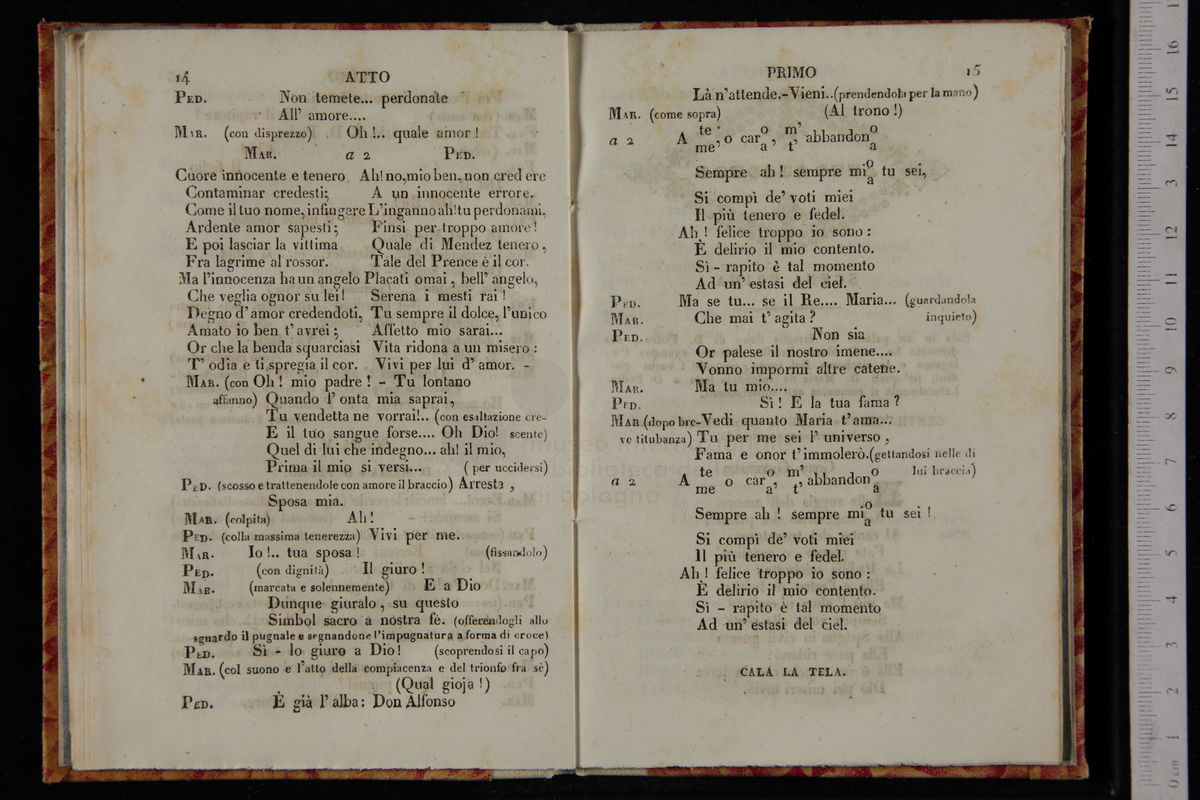 14 ATTO
PED. Non temete... perdonate
All' amore....
MAR. (con disprezzo) Oh!.. quale amor!
MAR. a 2 PED.
Cuore innocente e tenero Ah! no, mio ben, non credere
Contaminar credesti; A un innocente errore.
Come il tuo nome, infingere L'inganno ah! tu perdonami,
Ardente amor sapesti; Finsi per troppo amore!
E poi lasciar la vittima Quale di Mendez tenero,
Fra lagrime al rossor. Tale del Prence è il cor.
Ma l'innocenza ha un angelo Placati omai, bell' angelo,
Che veglia ognor su lei! Serena i mesti rai!
Degno d' amor credendoti, Tu sempre il dolce, l'unico
Amato io ben t' avrei; Affetto mio sarai...
Or che la benda squarciasi Vita ridona a un misero:
T' odia e ti spregia il cor. Vivi per lui d' amor. -
MAR. (con Oh! mio padre! - Tu lontano
affanno) Quando l' onta mia saprai,
Tu vendetta ne vorrai!.. (con esaltazione cre-
E il tuo sangue forse.... Oh Dio! scente)
Quel di lui che indegno... ah! il mio,
Prima il mio si versi... (per uccidersi)
PED. (scosso e trattenendole con amore il braccio) Arresta,
Sposa mia.
MAR. (colpita) Ah!
PED. (colla massima tenerezza) Vivi per me.
MAR. Io!.. tua sposa! (fissandolo)
PED. (con dignità) Il giuro!
MAR. (marcata e solennemente) E a Dio
Dunque giuralo, su questo
Simbol sacro a nostra fè. (offerendogli allo
sguardo il pugnale e segnandone l'impugnatura a forma di croce)
PED. Sì - lo giuro a Dio! (scoprendosi il capo)
MAR. (col suono e l'atto della compiacenza e del trionfo fra sè)
(Qual gioja!)
PED. È già l' alba: Don Alfonso
PRIMO 15
Là n'attende.-Vieni..(prendendola per la mano)
MAR. (come sopra) (Al trono!)
a 2 A te / me, o car o / a, m' / t' abbandon o / a
Sempre ah! sempre mi o / a tu sei,
Si compì de' voti miei
Il più tenero e fedel.
Ah! felice troppo io sono:
È delirio il mio contento.
Sì - rapito è tal momento
Ad un' estasi del ciel.
PED. Ma se tu... se il Re.... Maria... (guardandola
MAR. Che mai t' agita? inquieto)
PED. Non sia
Or palese il nostro imene....
Vonno impormi altre catene.
MAR. Ma tu mio....
PED. Sì! E la tua fama?
MAR (dopo bre-Vedi quanto Maria t'ama...
ve titubanza) Tu per me sei l' universo,
Fama e onor t'immolerò.(gettandosi nelle di
lui braccia)
a 2 A te / me o car o / a, m' / t', abbandon o / a
Sempre ah! sempre mi o / a tu sei!
Si compì de' voti miei
Il più tenero e fedel.
Ah! felice troppo io sono:
È delirio il mio contento.
Sì - rapito è tal momento
Ad un' estasi del ciel.
CALA LA TELA.